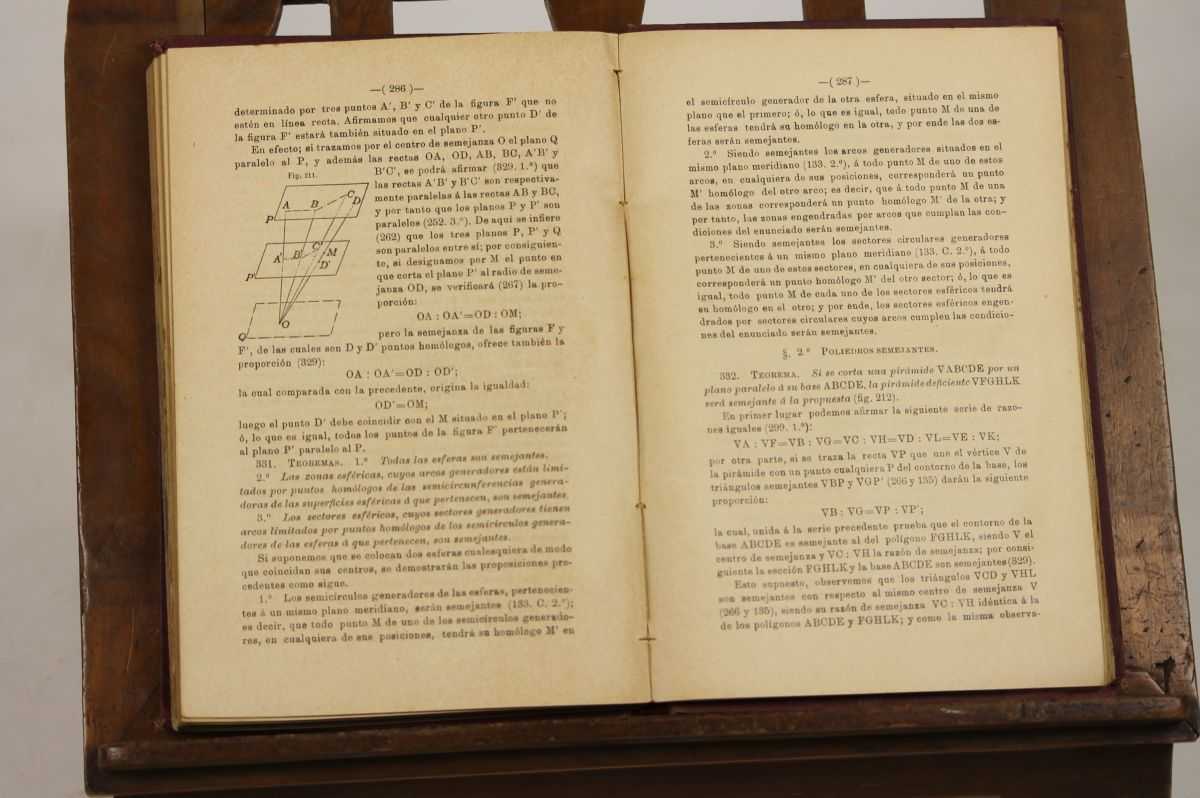 —( 286 )—
determinado por tres puntos A', B' y C' de la figura F' que no
estén en línea recta. Afirmamos que cualquier otro punto D' de
la figura F' estará también situado en el plano P'.
En efecto; si trazamos por el centro de semejanza O el plano Q
paralelo al P, y además las rectas OA, OD, AB, BC, A'B' y
Fig. 211.
B'C', se podrá afirmar (329. 1.º) que
las rectas A'B' y B'C' son respectiva-
mente paralelas á las rectas AB y BC,
y por tanto que los planos P y P' son
paralelos (252. 3.º). De aquí se infiere
(262) que los tres planos P, P' y Q
son paralelos entre sí; por consiguien-
te, si designamos por M el punto en
que corta el plano P' al radio de seme-
janza OD, se verificará (267) la pro-
porción:
A B C D
P
A' B' C' M
D'
P'
O
Q
OA : OA'=OD : OM;
pero la semejanza de las figuras F y
F', de las cuales son D y D' puntos homólogos, ofrece también la
proporción (329):
OA : OA'=OD : OD';
la cual comparada con la precedente, origina la igualdad:
OD'=OM;
luego el punto D' debe coincidir con el M situado en el plano P';
ó, lo que es igual, todos los puntos de la figura F' pertenecerán
al plano P' paralelo al P.
331. TEOREMAS. 1.º Todas las esferas son semejantes.
2.º Las zonas esféricas, cuyos arcos generadores están limi-
tados por puntos homólogos de las semicircunferencias genera-
doras de las superficies esféricas á que pertenecen, son semejantes.
3.º Los sectores esféricos, cuyos sectores generadores tienen
arcos limitados por puntos homólogos de los semicírculos genera-
dores de las esferas á que pertenecen, son semejantes.
Si suponemos que se colocan dos esferas cualesquiera de modo
que coincidan sus centros, se demostrarán las proposiciones pre-
cedentes como sigue.
1.º Los semicírculos generadores de las esferas, pertenecien-
tes á un mismo plano meridiano, serán semejantes (133. C. 2.º);
es decir, que todo punto M de uno de los semicírculos generado-
res, en cualquiera de sus posiciones, tendrá su homólogo M' en
—( 287 )—
el semicírculo generador de la otra esfera, situado en el mismo
plano que el primero; ó, lo que es igual, todo punto M de una de
las esferas tendrá su homólogo en la otra, y por ende las dos es-
feras serán semejantes.
2.º Siendo semejantes los arcos generadores situados en el
mismo plano meridiano (133. 2.º), á todo punto M de uno de estos
arcos, en cualquiera de sus posiciones, corresponderá un punto
M' homólogo del otro arco; es decir, que á todo punto M de una
de las zonas corresponderá un punto homólogo M' de la otra; y
por tanto, las zonas engendradas por arcos que cumplan las con-
diciones del enunciado serán semejantes.
3.º Siendo semejantes los sectores circulares generadores
pertenecientes á un mismo plano meridiano (133. C. 2.º), á todo
punto M de uno de estos sectores, en cualquiera de sus posiciones,
corresponderá un punto homólogo M' del otro sector; ó, lo que es
igual, todo punto M de cada uno de los sectores esféricos tendrá
su homólogo en el otro; y por ende, los sectores esféricos engen-
drados por sectores circulares cuyos arcos cumplen las condicio-
nes del enunciado serán semejantes.
§. 2.º POLIEDROS SEMEJANTES.
332. TEOREMA. Si se corta una pirámide VABCDE por un
plano paralelo á su base ABCDE, la pirámide deficiente VFGHLK
será semejante á la propuesta (fig. 212).
En primer lugar podemos afirmar la siguiente serie de razo-
nes iguales (299. 1.º):
VA : VF=VB : VG=VC : VH=VD : VL=VE : VK;
por otra parte, si se traza la recta VP que une el vértice V de
la pirámide con un punto cualquiera P del contorno de la base, los
triángulos semejantes VBP y VGP' (266 y 135) darán la siguiente
proporción:
VB : VG=VP : VP';
la cual, unida á la serie precedente prueba que el contorno de la
base ABCDE es semejante al del polígono FGHLK, siendo V el
centro de semejanza y VC : VH la razón de semejanza; por consi-
guiente la sección FGHLK y la base ABCDE son semejantes (329).
Esto supuesto, observemos que los triángulos VCD y VHL
son semejantes con respecto al mismo centro de semejanza V
(266 y 135), siendo su razón de semejanza VC : VH idéntica á la
de los polígonos ABCDE y FGHLK; y como la misma observa-